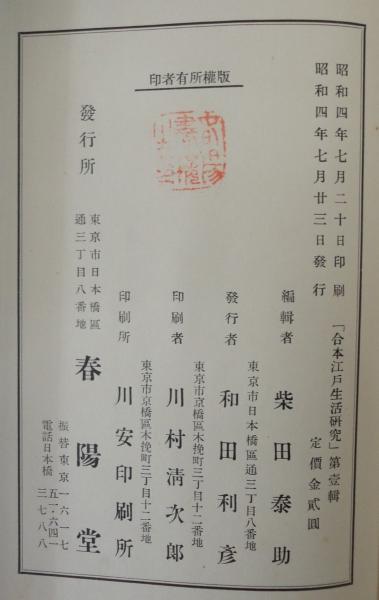 昭和四年七月二十日印刷
昭和四年七月廿三日發行
「合本江戸生活研究」第壹輯
定價金貳圓
編輯者 柴田泰助
東京市日本橋區通三丁目八番地
發行者 和田利彦
東京市京橋區木挽町三丁目十二番地
印刷者 川村清次郎
東京市京橋區木挽町三丁目十二番地
印刷所 川安印刷所
印者有所權版
發行所
東京市日本橋區
通三丁目八番地
春陽堂
振替東京一六一一七
電話日本橋
五一・六四一
三七八八